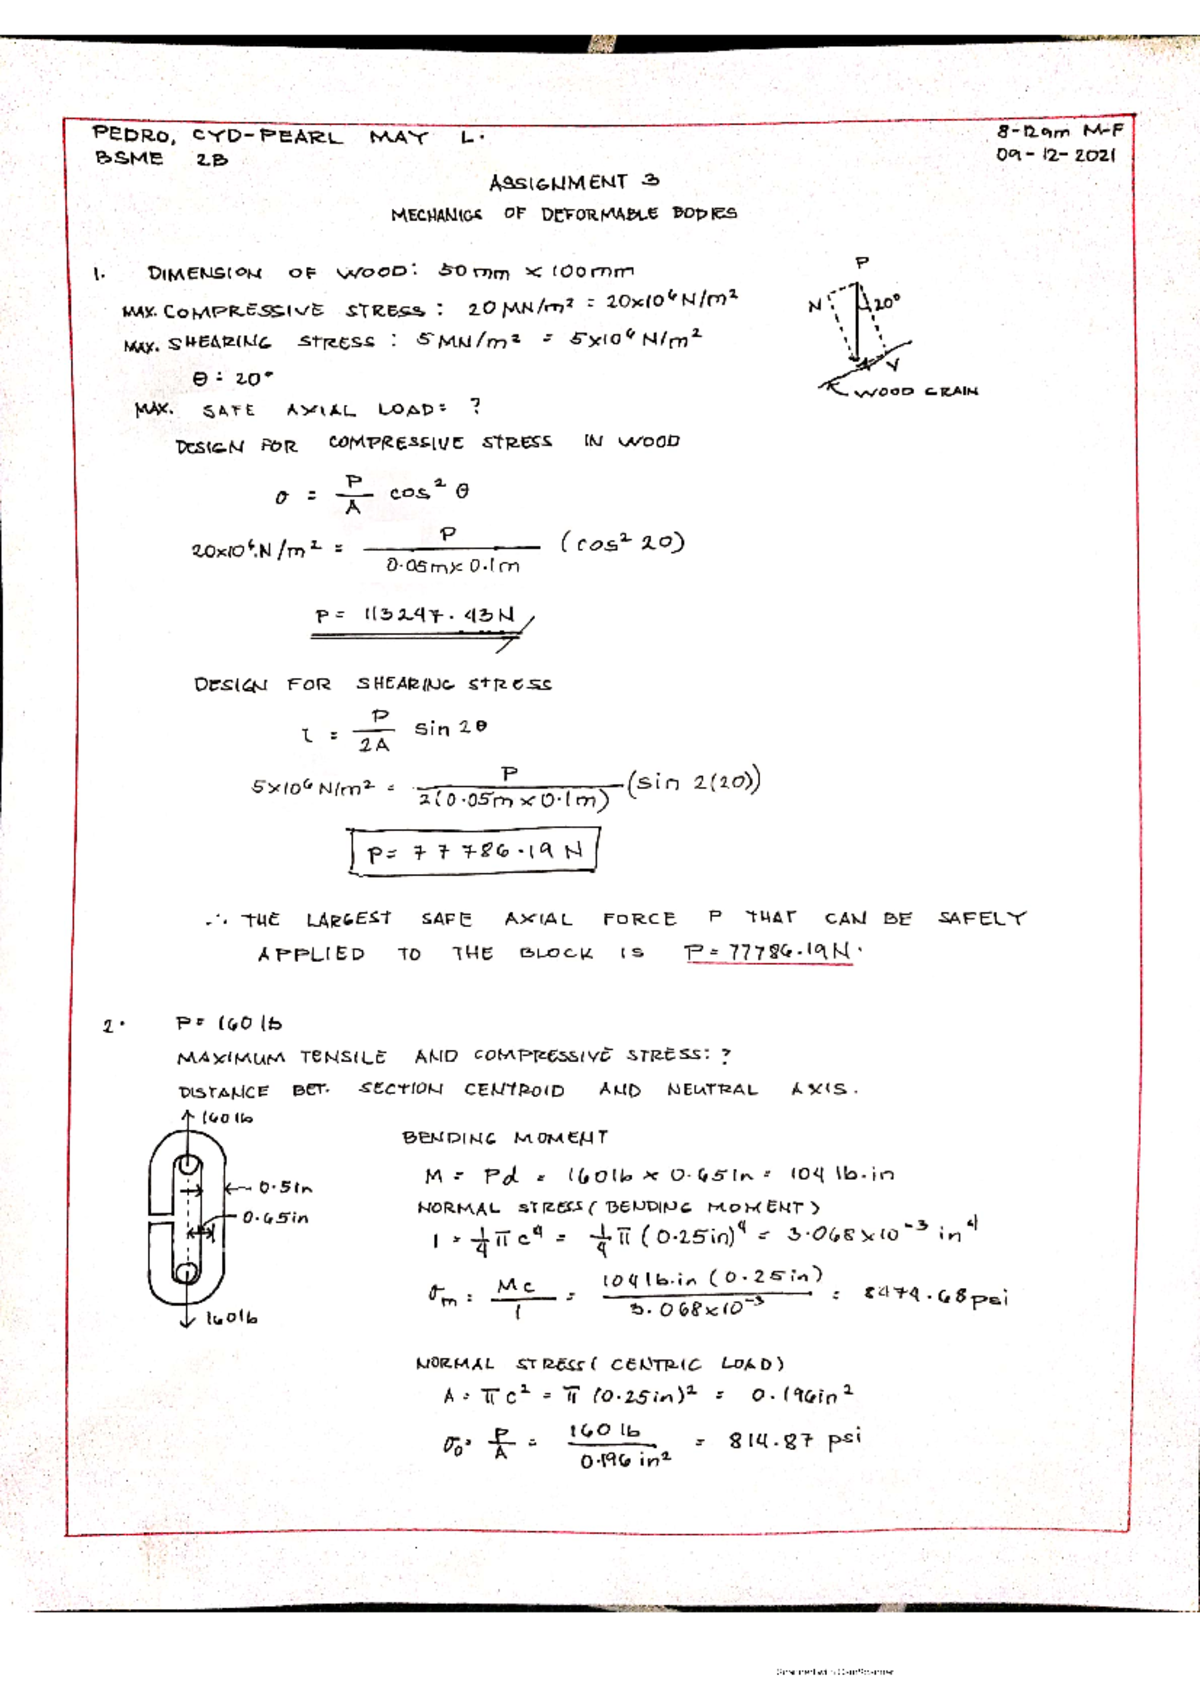 PEDRO, CYD-PEARL MAY L.
8-12am M-F
BSME 2B
09-12-2021
ASSIGNMENT 3
MECHANICS OF DEFORMABLE BODIES
1. DIMENSION OF WOOD: 50mm × 100mm
MAX. COMPRESSIVE STRESS: 20MN/m² = 20×10⁶N/m²
MAX. SHEARING STRESS: 5MN/m² = 5×10⁶N/m²
θ = 20°
MAX. SAFE AXIAL LOAD: ?
P
N
20°
V
WOOD GRAIN
DESIGN FOR COMPRESSIVE STRESS IN WOOD
σ = P/A cos² θ
20×10⁶N/m² = P/(0.05m×0.1m) (cos² 20)
P = 113247.43N
DESIGN FOR SHEARING STRESS
τ = P/2A sin 2θ
5×10⁶N/m² = P/(2(0.05m×0.1m)) (sin 2(20))
P = 77786.19N
∴ THE LARGEST SAFE AXIAL FORCE P THAT CAN BE SAFELY
APPLIED TO THE BLOCK IS P = 77786.19N.
2. P = 160 lb
MAXIMUM TENSILE AND COMPRESSIVE STRESS: ?
DISTANCE BET. SECTION CENTROID AND NEUTRAL AXIS.
160lb
0.5in
0.65in
160lb
BENDING MOMENT
M = Pd = 160lb × 0.65in = 104 lb.in
NORMAL STRESS (BENDING MOMENT)
I = 1/4 π c⁴ = 1/4 π (0.25in)⁴ = 3.068×10⁻³ in⁴
σm = Mc/I = 104lb.in (0.25in)/3.068×10⁻³ = 8474.68psi
NORMAL STRESS (CENTRIC LOAD)
A = πc² = π (0.25in)² = 0.196in²
σ₀ = P/A = 160 lb/0.196 in² = 814.87 psi